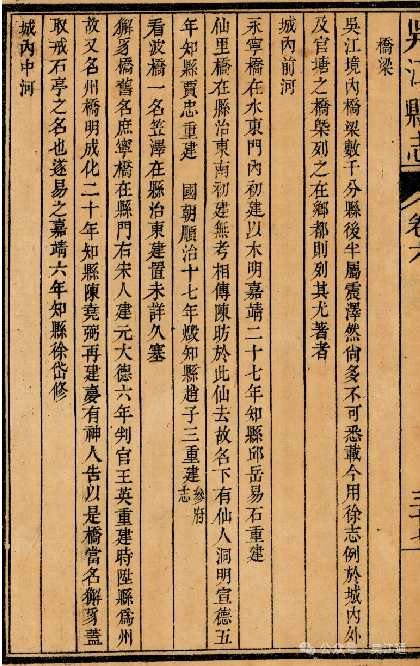 吳江縣志
卷六
橋梁
吳江境內橋梁數千分縣後半屬震澤然尙多不可悉載今用徐志例於城內外
及官塘之橋槩列之在鄉都則列其尤著者
城內前河
永寧橋在水東門內初建以木明嘉靖二十七年知縣邱岳易石重建
仙里橋在縣治東南初建無考相傳陳昉於此仙去故名下有仙人洞明宣德五
年知縣賈忠重建 國朝順治十七年燬知縣趙子三重建參府志
看波橋一名笠澤在縣治東建置未詳久塞
獬豸橋舊名庶寧橋在縣門右宋人建元大德六年判官王英重建時陞縣爲州
故又名州橋明成化二十年知縣陳堯弼再建夢有神人告以是橋當名獬豸蓋
取戒石亭之名也遂易之嘉靖六年知縣徐岱修
城內中河
公众号·吴江通